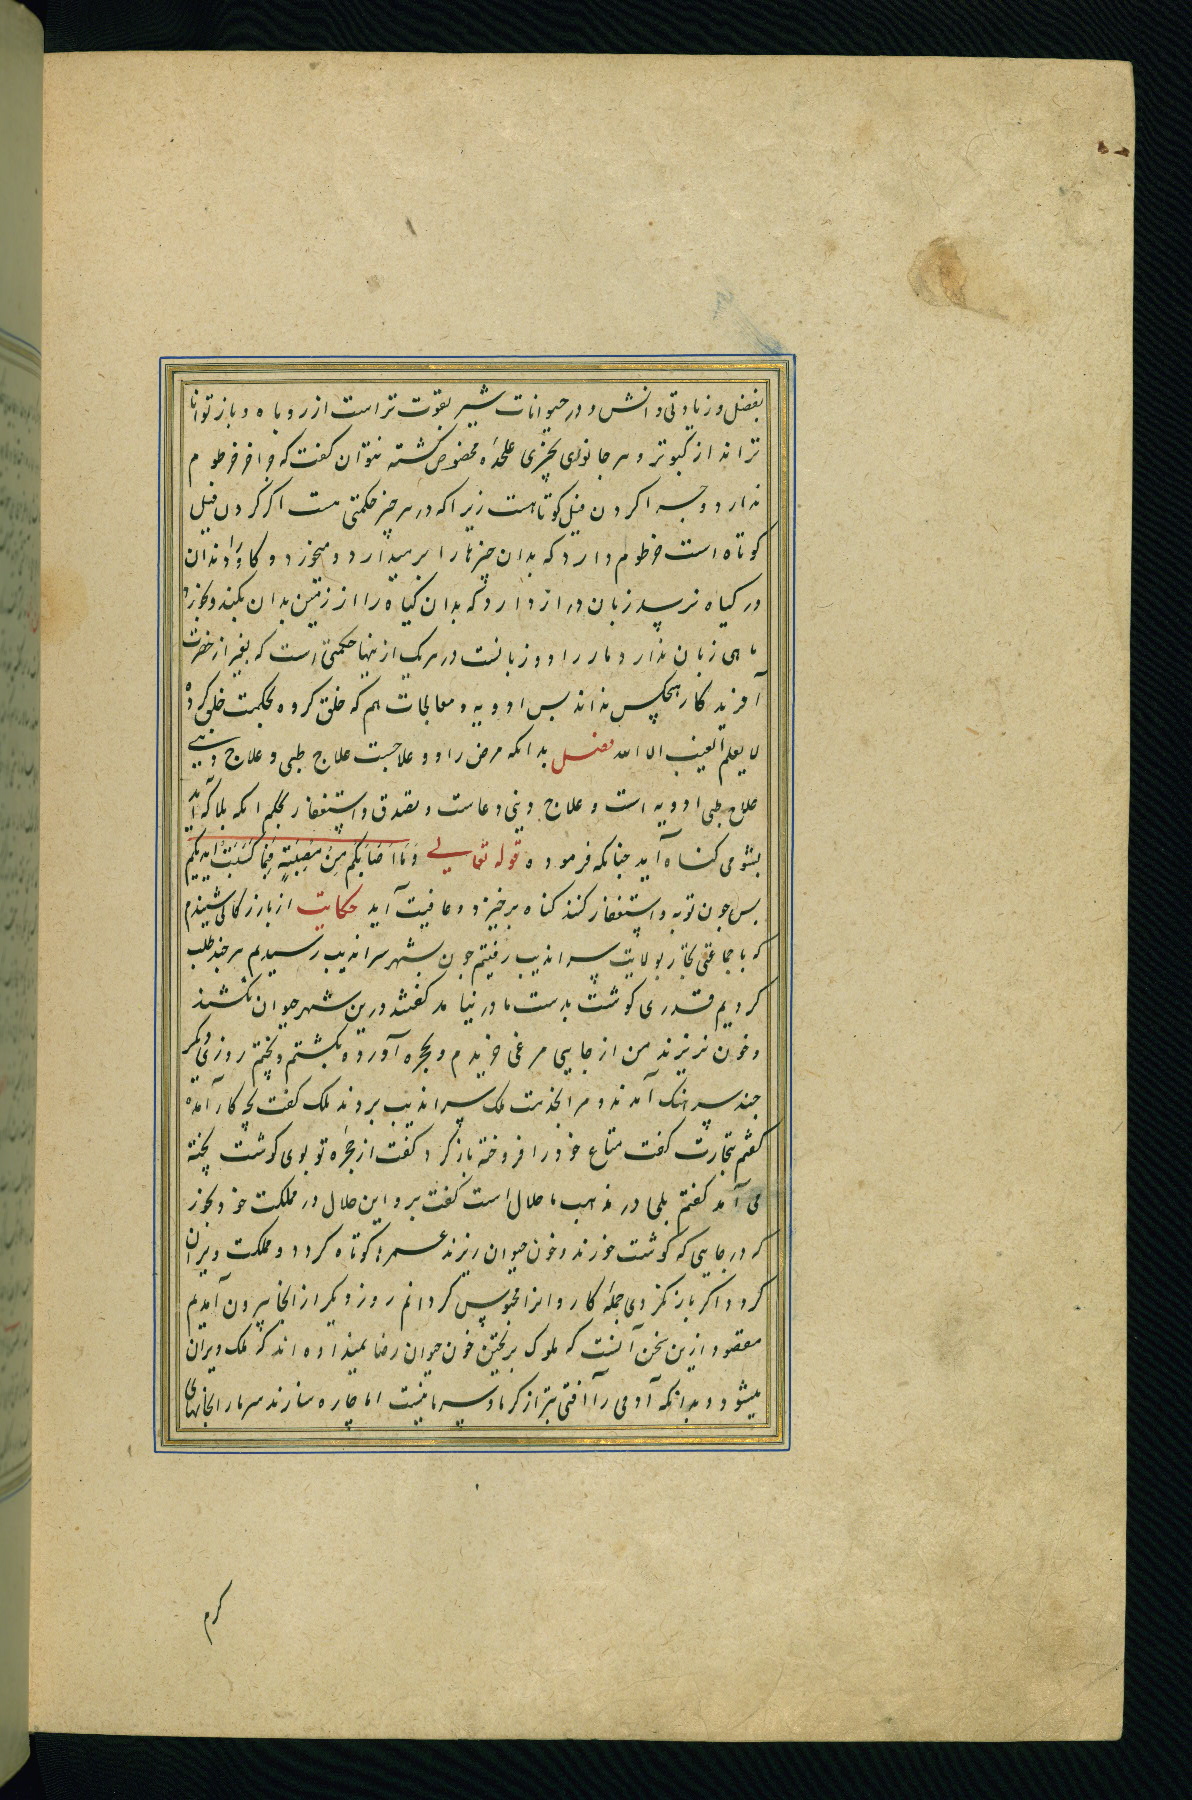 بفضل و زیادتی دانش و در حیوانات شیر بقوت تر است از روباه و باز توانا
تر اند از کبوتر و هر جانوری بچیزی علیحده مخصوص کشته نتوان کفت که خرطوم
ندارد و جرا کردن فیل کوتاهست زیرا که در هر چیز حکمتی هست اکر کردن فیل
کوتاه است خرطوم دارد که بدان چیزها را بر میدارد و میخورد و کاو را دندان
در کیاه نرسد زبان دراز دارد که بدان کیاه را از زمین بدان بکند و بخورد
ماهی زبان ندارد مار را دو زبانست در هر یک از اینها حکمتی است که بغیر از حضرت
آفریدکار هیچکس نداند بس ادویه و معالجات هم که خلق کرده بحکمت خلق کرده
لا یعلم الغیب الا الله فصل بدانکه مرض را دو علاجست علاج طبی و علاج دینی
علاج طبی ادویه است و علاج دینی دعاست و تصدق و استغفار بحکم انکه بلا که آید
بشومی کناه آید جنانکه فرموده قوله تعالی وَمَا اَصَابَکُم مِن مُصِیبَةٍ فَبِمَا کَسَبَت اَیدِیکُم
بس جون توبه و استغفار کنند کناه برخیزد و عافیت آید حکایت از بازرکانی شنیدم
که با جماعتی تجار بولایت سراندیب رفتیم جون بشهر سراندیب رسیدیم هر جند طلب
کردیم قدری کوشت بدست ما در نیامد کفتند درین شهر حیوان نکشند
و خون نریزند من از جایی مرغی خریدم و بحجره آورده بکشتم و بختم روزی دیکر
جند سرهنک آمدند و مرا بخدمت ملک سراندیب بردند ملک کفت بچه کار آمدۀ
کفتم بتجارت کفت متاع خود را فروخته باز کرد کفت از حجره تو بوی کوشت بخته
می آمد کفتم بلی در مذهب ما حلال است کفت برو این حلال در مملکت خود بخور
که در جایی که کوشت خورند و خون حیوان ریزند عمر کوتاه کردد و مملکت ویران
کردد اکر باز نکردی جمله کاروانرا محبوس کردانم روز دیکر از انجا بیرون آمدیم
مقصود ازین سخن آنست که ملوک بریختن خون حیوان رضا نمیداده اند که ملک ویران
میشود و بدانکه آدمی را آفتی بتر از کرما و سرما نیست اما چاره سازند سرما را بخانهای
کرم